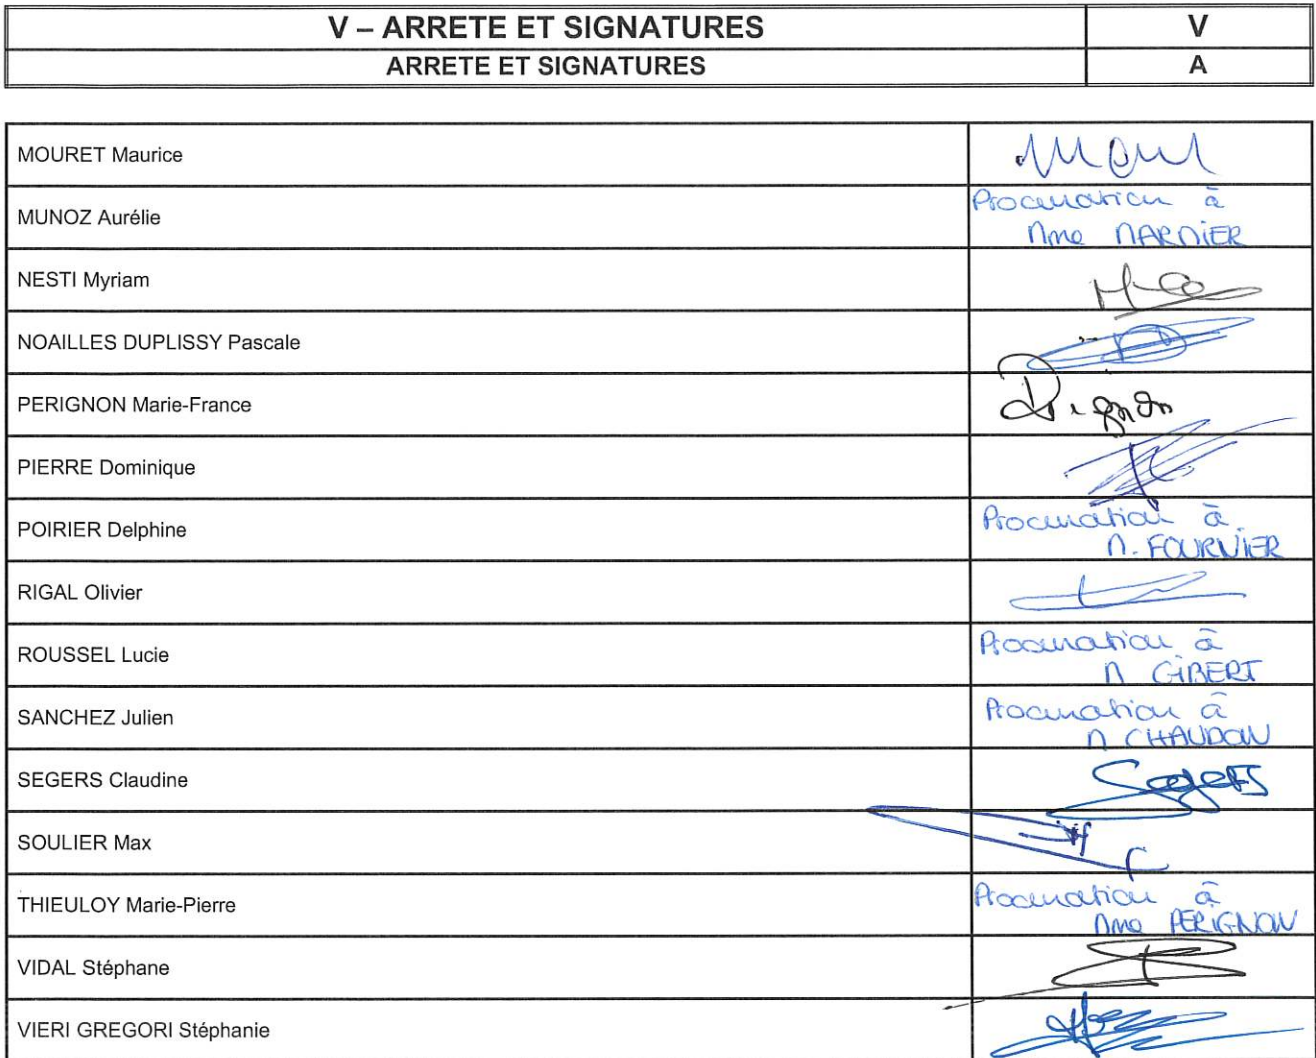 V – ARRETE ET SIGNATURES V
ARRETE ET SIGNATURES A
MOURET Maurice
MUNOZ Aurélie Procuration à
Mme MARNIER
NESTI Myriam
NOAILLES DUPLISSY Pascale
PERIGNON Marie-France Perignon
PIERRE Dominique
POIRIER Delphine Procuration à
M. FOURNIER
RIGAL Olivier
ROUSSEL Lucie Procuration à
M GIBERT
SANCHEZ Julien Procuration à
M CHAUDON
SEGERS Claudine Segers
SOULIER Max
THIEULOY Marie-Pierre Procuration à
Mme PERIGNON
VIDAL Stéphane
VIERI GREGORI Stéphanie